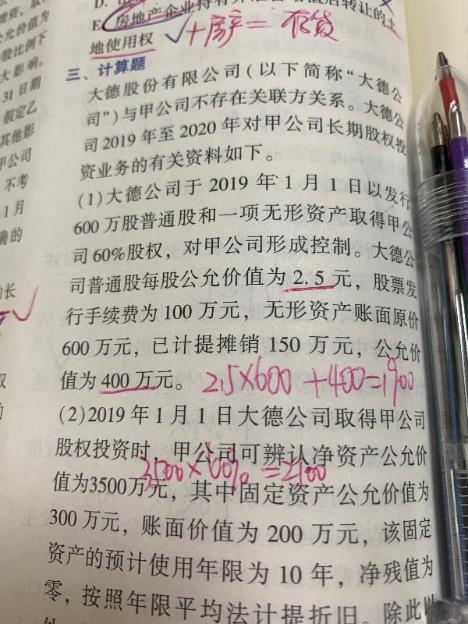 E. 房地产企业持有并准备增值后转让的土
地使用权 √+房产=存货
三、计算题
大德股份有限公司(以下简称“大德公
司”)与甲公司不存在关联方关系。大德公
司2019年至2020年对甲公司长期股权投
资业务的有关资料如下。
(1)大德公司于2019年1月1日以发行
600万股普通股和一项无形资产取得甲公
司60%股权，对甲公司形成控制。大德公
司普通股每股公允价值为2.5元，股票发
行手续费为100万元，无形资产账面原价
600万元，已计提摊销150万元，公允价
值为400万元。 2.5×600+400=1900
(2)2019年1月1日大德公司取得甲公司
股权投资时，甲公司可辨认净资产公允价
3500×60%=2100
值为3500万元，其中固定资产公允价值为
300万元，账面价值为200万元，该固定
资产的预计使用年限为10年，净残值为
零，按照年限平均法计提折旧。除此以